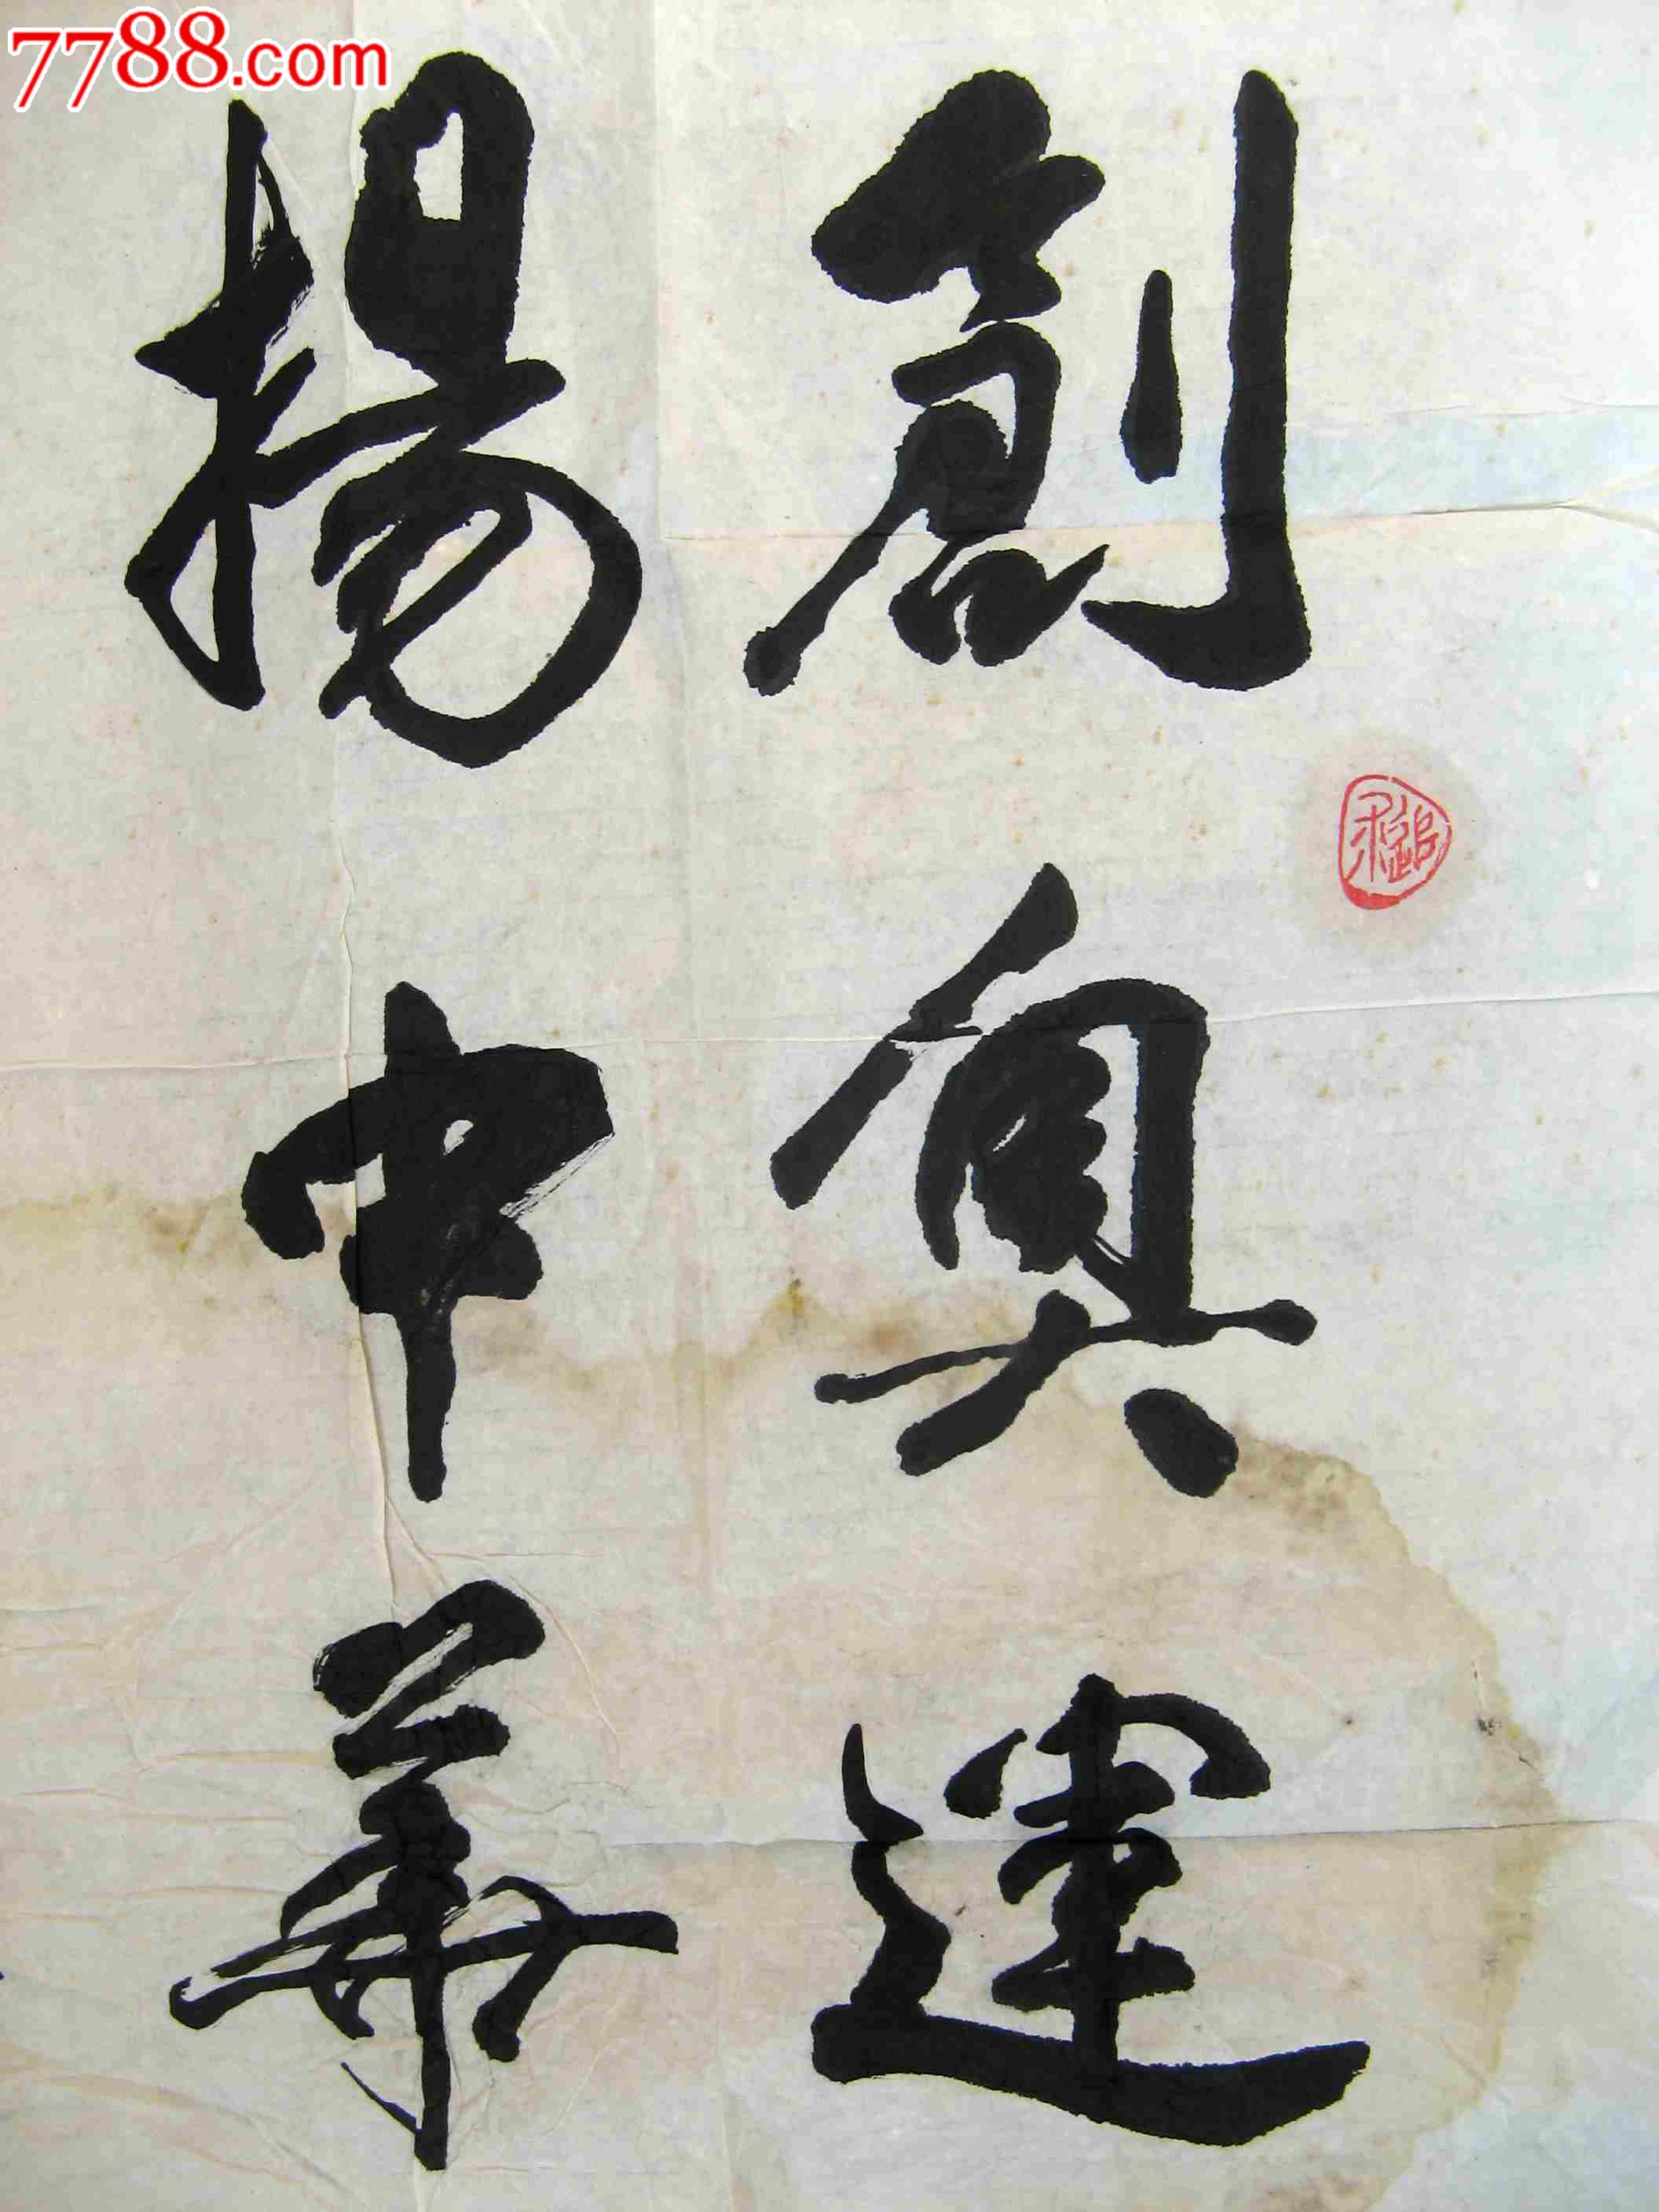 7788.com
創奧運
揚中華